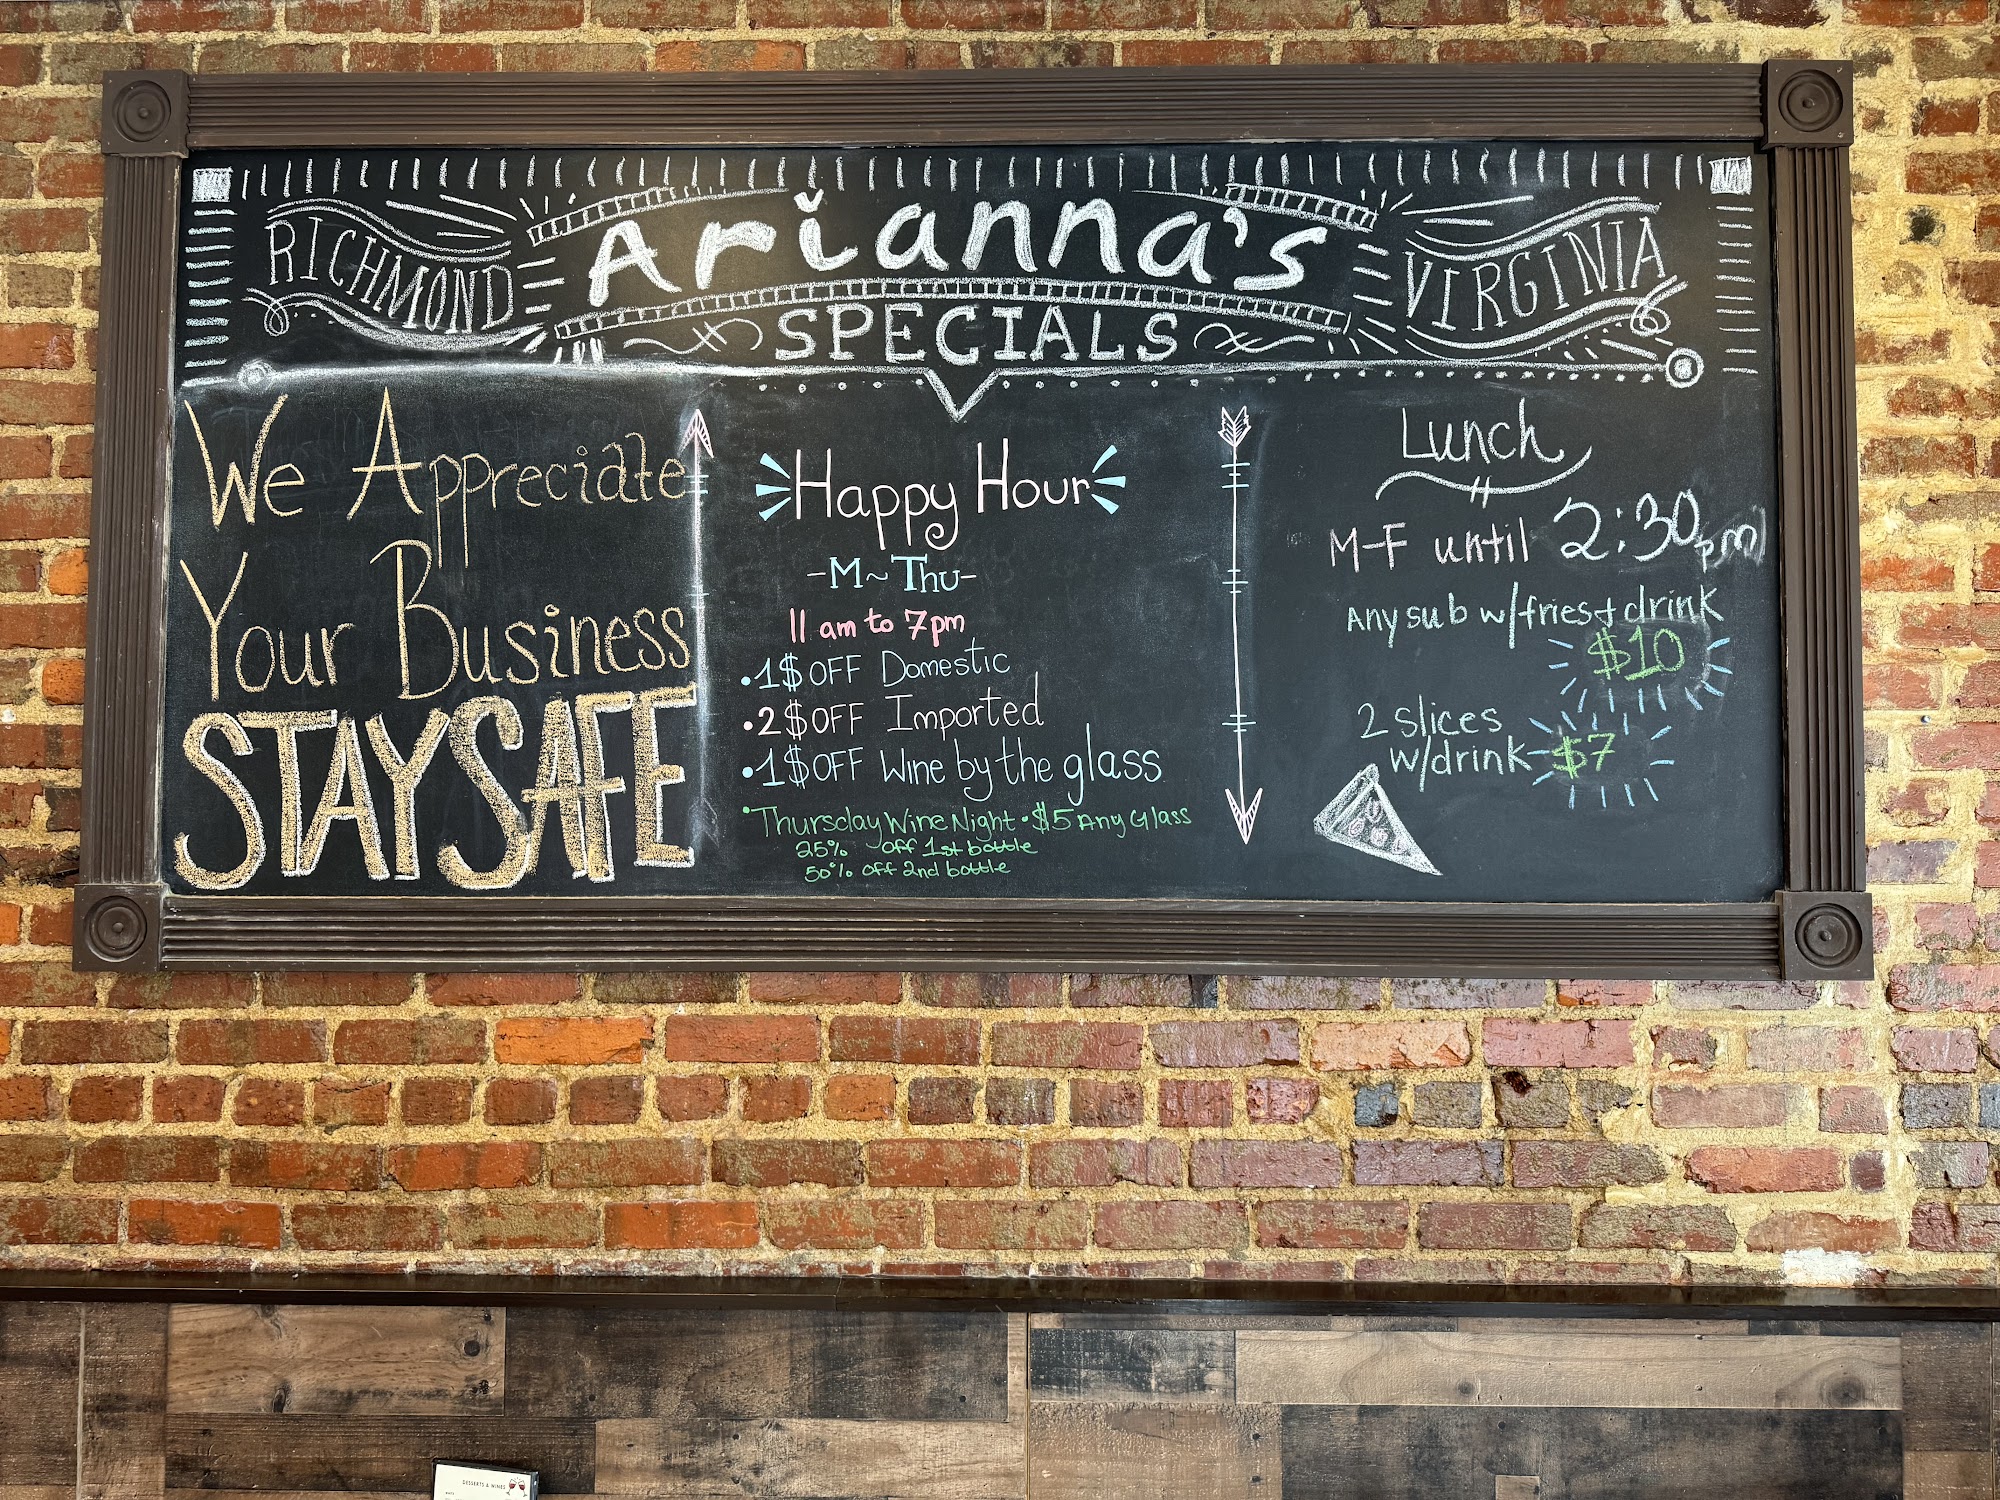 RICHMOND
Arianna's
VIRGINIA
SPECIALS
We Appreciate
Your Business
STAY SAFE
Happy Hour
-M~Thu-
11 am to 7pm
•1$ OFF Domestic
•2$ OFF Imported
•1$ OFF Wine by the glass
•Thursday Wine Night • $5 Any Glass
25% off 1st bottle
50% off 2nd bottle
Lunch
M-F until 2:30pm
Any sub w/fries+drink
$10
2 slices
w/drink $7
DESSERTS & WINES